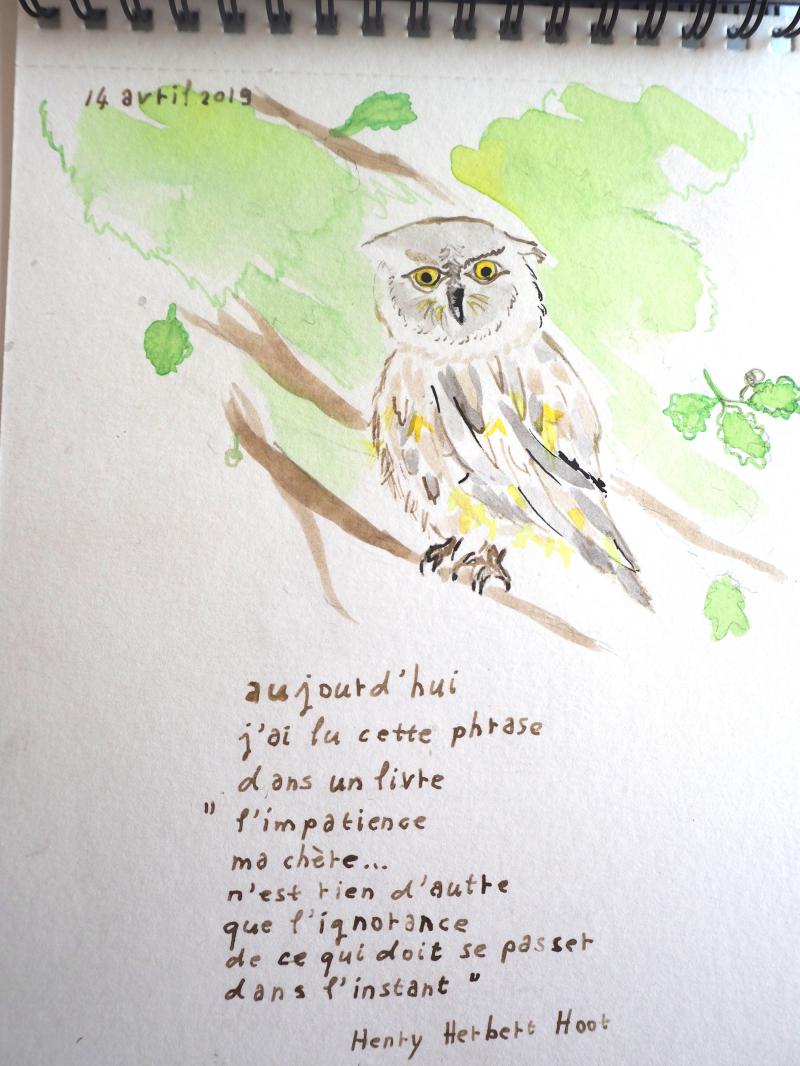 14 avril 2019
aujourd'hui
j'ai lu cette phrase
dans un livre
" l'impatience
ma chère...
n'est rien d'autre
que l'ignorance
de ce qui doit se passer
dans l'instant "
Henry Herbert Hoot